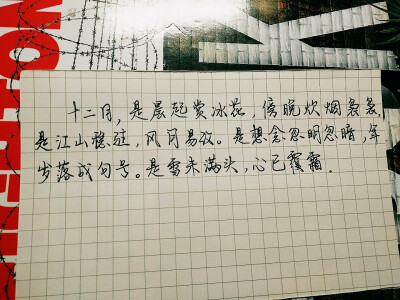 十二月，是晨起赏冰花，傍晚炊烟袅袅，
是江山稳驻，风月易改。是想念忽明忽暗，年
岁落成句号。是雪未满头，心已覆霜.